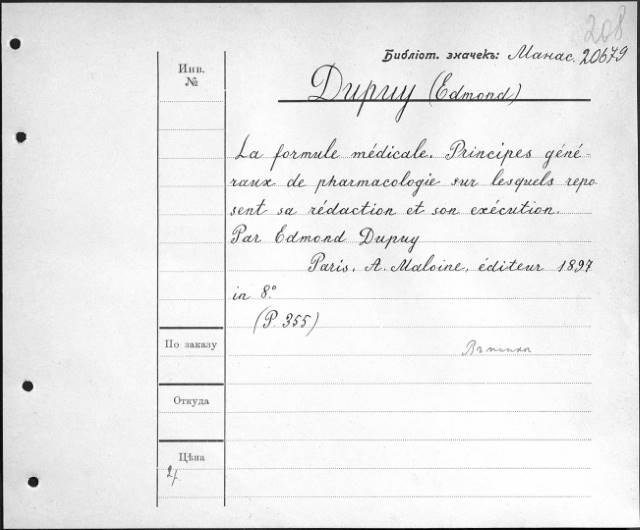 208
Библіот. значекъ: Манас. 20679
Инв.
№
Dupuy (Edmond)
La formule médicale. Principes géné-
raux de pharmacologie sur lesquels repo
sent sa rédaction et son exécution.
Par Edmond Dupuy
Paris. A. Maloine, éditeur 1897
in 8º
(P. 355)
По заказу
Откуда
Цѣна